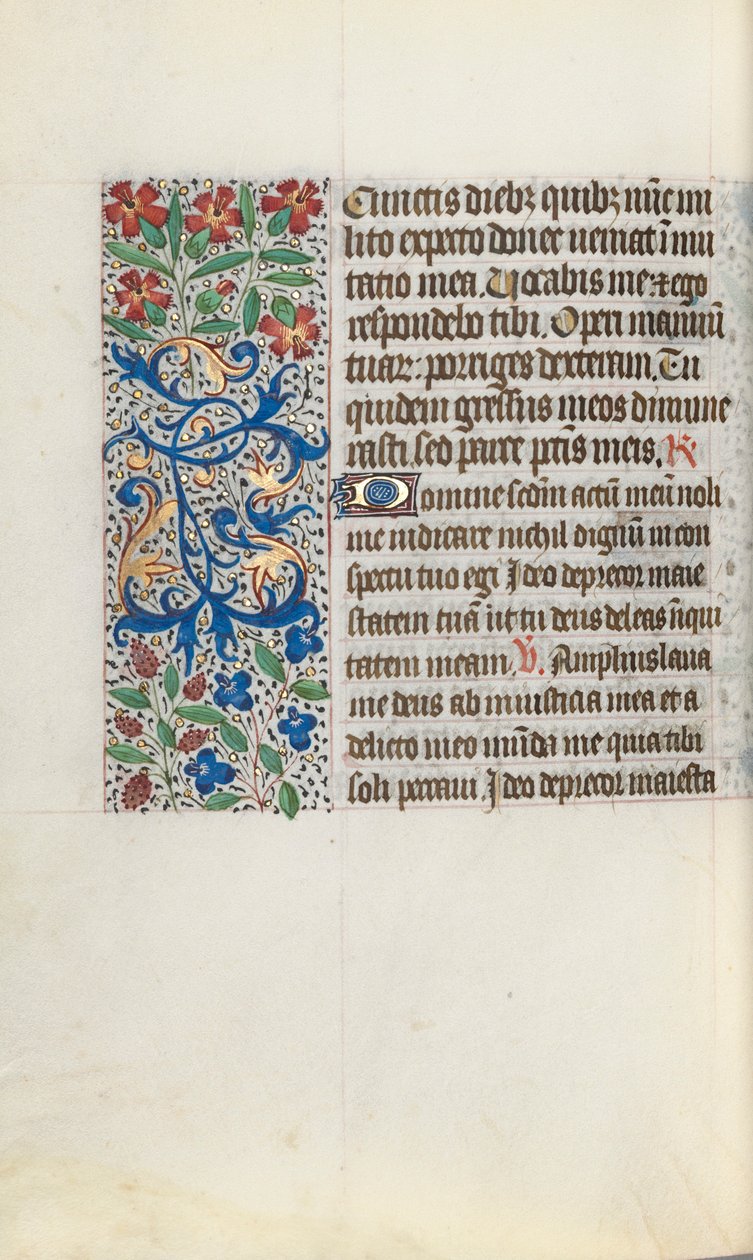 Cunctis diebꝫ quibꝫ nūc mi
lito expecto donec ueniat ī mu
tatio mea. Uocabis me ⁊ ego
respondebo tibi. Operi manuū
tuaꝝ: porriges dexteram. Tu
quidem gressus meos dinume
rasti sed parce pctīs meis. R
Domine scd̄m actū meū noli
me iudicare nichil dignū in con
spectu tuo egi Ideo deprecor maie
statem tuā ut tu deus deleas īiqui
tatem meam. V. Amplius laua
me deus ab iniusticia mea et a
delicto meo mūda me quia tibi
soli peccaui. Ideo deprecor maiesta